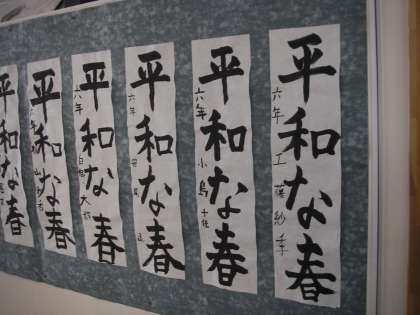 平和な春
六年 工藤紗季
平和な春
六年 小島
平和な春
六年
平和な春
六年
平和な春
平和な春